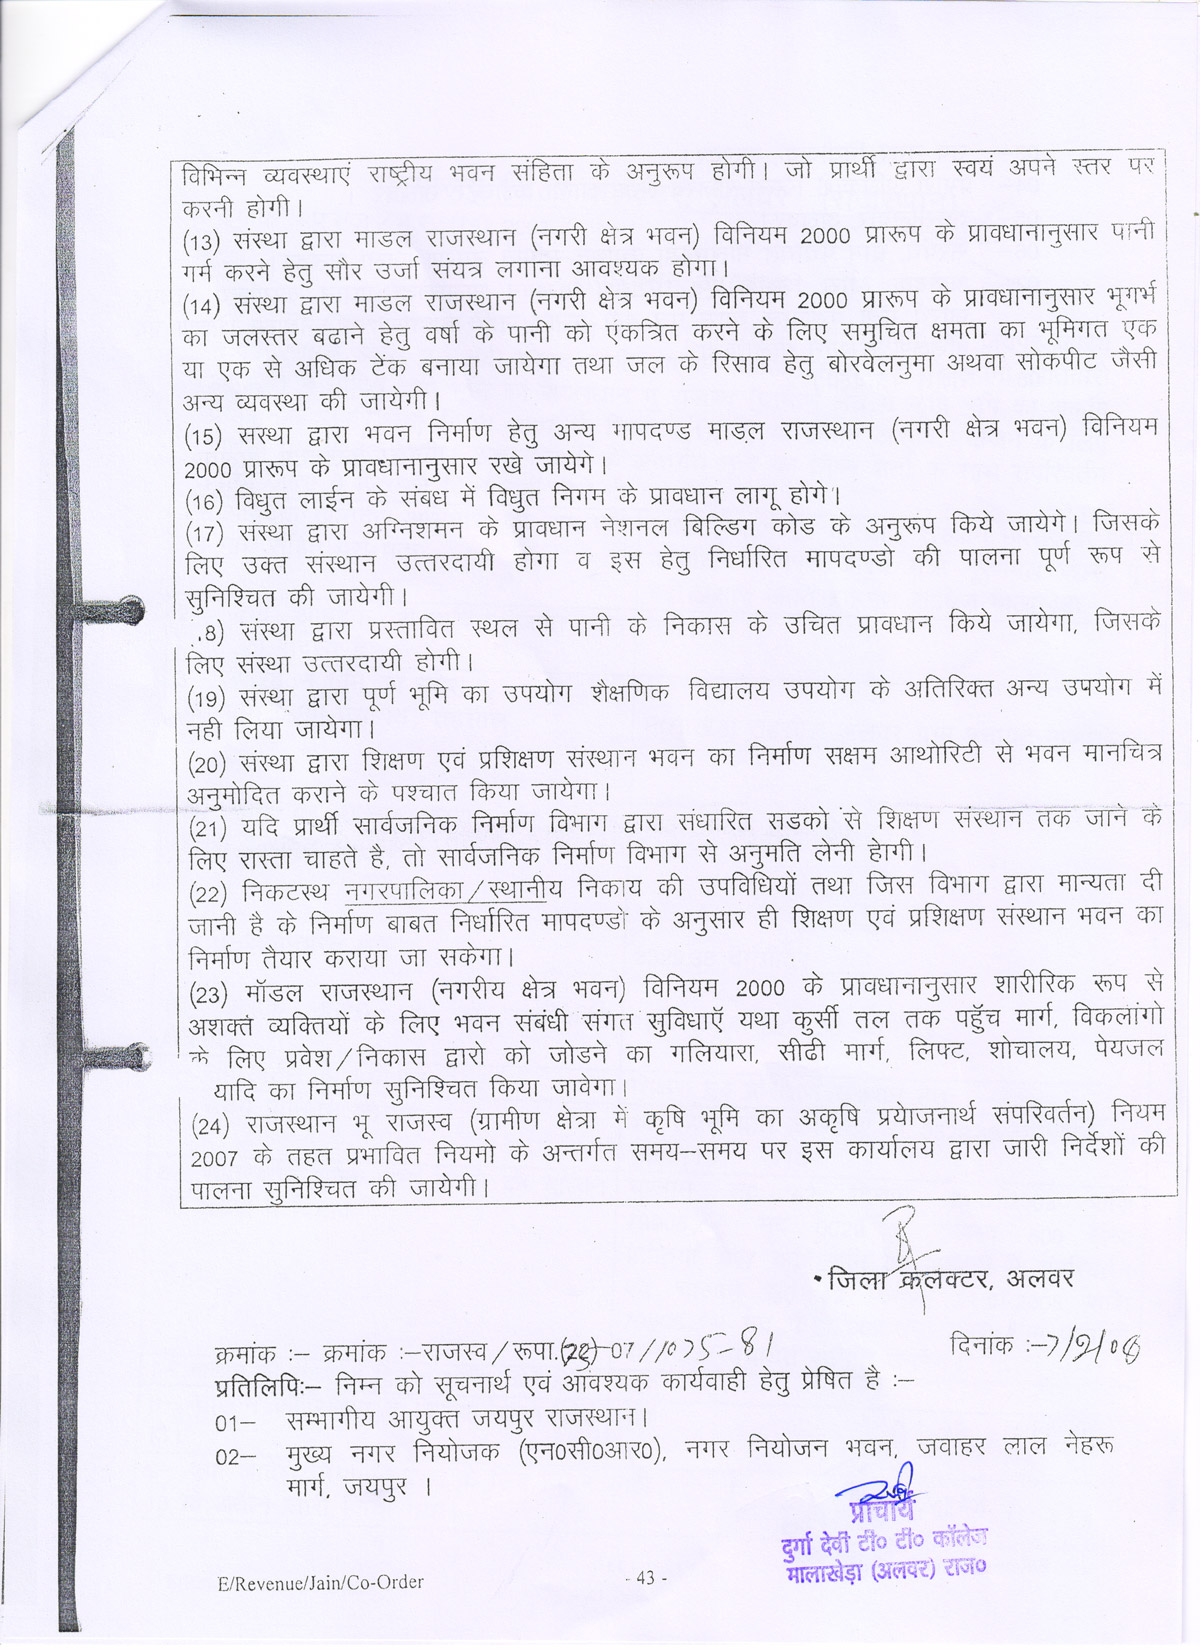 विभिन्न व्यवस्थाएं राष्ट्रीय भवन संहिता के अनुरूप होगी। जो प्रार्थी द्वारा स्वयं अपने स्तर पर
करनी होगी।
(13) संस्था द्वारा माडल राजस्थान (नगरी क्षेत्र भवन) विनियम 2000 प्रारूप के प्रावधानानुसार पानी
गर्म करने हेतु सौर उर्जा संयत्र लगाना आवश्यक होगा।
(14) संस्था द्वारा माडल राजस्थान (नगरी क्षेत्र भवन) विनियम 2000 प्रारूप के प्रावधानानुसार भूगर्भ
का जलस्तर बढाने हेतु वर्षा के पानी को एंकत्रित करने के लिए समुचित क्षमता का भूमिगत एक
या एक से अधिक टेंक बनाया जायेगा तथा जल के रिसाव हेतु बोरवेलनुमा अथवा सोकपीट जैसी
अन्य व्यवस्था की जायेगी।
(15) सस्था द्वारा भवन निर्माण हेतु अन्य मापदण्ड माड़ल राजस्थान (नगरी क्षेत्र भवन) विनियम
2000 प्रारूप के प्रावधानानुसार रखे जायेगे।
(16) विधुत लाईन के संबध में विधुत निगम के प्रावधान लागू होगे।
(17) संस्था द्वारा अग्निशमन के प्रावधान नेशनल बिल्डिग कोड के अनुरूप किये जायेगे। जिसके
लिए उक्त संस्थान उत्तरदायी होगा व इस हेतु निर्धारित मापदण्डो की पालना पूर्ण रूप से
सुनिश्चित की जायेगी।
8) संस्था द्वारा प्रस्तावित स्थल से पानी के निकास के उचित प्रावधान किये जायेगा, जिसके
लिए संस्था उत्तरदायी होगी।
(19) संस्था द्वारा पूर्ण भूमि का उपयोग शैक्षणिक विद्यालय उपयोग के अतिरिक्त अन्य उपयोग में
नही लिया जायेगा।
(20) संस्था द्वारा शिक्षण एवं प्रशिक्षण संस्थान भवन का निर्माण सक्षम आथोरिटी से भवन मानचित्र
अनुमोदित कराने के पश्चात किया जायेगा।
(21) यदि प्रार्थी सार्वजनिक निर्माण विभाग द्वारा संधारित सडको से शिक्षण संस्थान तक जाने के
लिए रास्ता चाहते है, तो सार्वजनिक निर्माण विभाग से अनुमति लेनी हेागी।
(22) निकटस्थ नगरपालिका/स्थानीय निकाय की उपविधियों तथा जिस विभाग द्वारा मान्यता दी
जानी है के निर्माण बाबत निर्धारित मापदण्डो के अनुसार ही शिक्षण एवं प्रशिक्षण संस्थान भवन का
निर्माण तैयार कराया जा सकेगा।
(23) मॉडल राजस्थान (नगरीय क्षेत्र भवन) विनियम 2000 के प्रावधानानुसार शारीरिक रूप से
अशक्त व्यक्तियों के लिए भवन संबंधी संगत सुविधाऍ यथा कुर्सी तल तक पहुँच मार्ग, विकलांगो
के लिए प्रवेश/निकास द्वारो को जोडने का गलियारा, सीढी मार्ग, लिफ्ट, शोचालय, पेयजल
यादि का निर्माण सुनिश्चित किया जावेगा।
(24) राजस्थान भू राजस्व (ग्रामीण क्षेत्रा में कृषि भूमि का अकृषि प्रयेाजनार्थ संपरिवर्तन) नियम
2007 के तहत प्रभावित नियमो के अन्तर्गत समय–समय पर इस कार्यालय द्वारा जारी निर्देशों की
पालना सुनिश्चित की जायेगी।
जिला कलक्टर, अलवर
क्रमांक :– क्रमांक :–राजस्व/रूपा. 07/1075-81 दिनांक :–7/2/08
प्रतिलिपिः– निम्न को सूचनार्थ एवं आवश्यक कार्यवाही हेतु प्रेषित है :–
01– सम्भागीय आयुक्त जयपुर राजस्थान।
02– मुख्य नगर नियोजक (एन0सी0आर0), नगर नियोजन भवन, जवाहर लाल नेहरू
मार्ग, जयपुर ।
प्राचार्य
दुर्गा देवी टी० टी० कॉलेज
मालाखेड़ा (अलवर) राज०
E/Revenue/Jain/Co-Order - 43 -